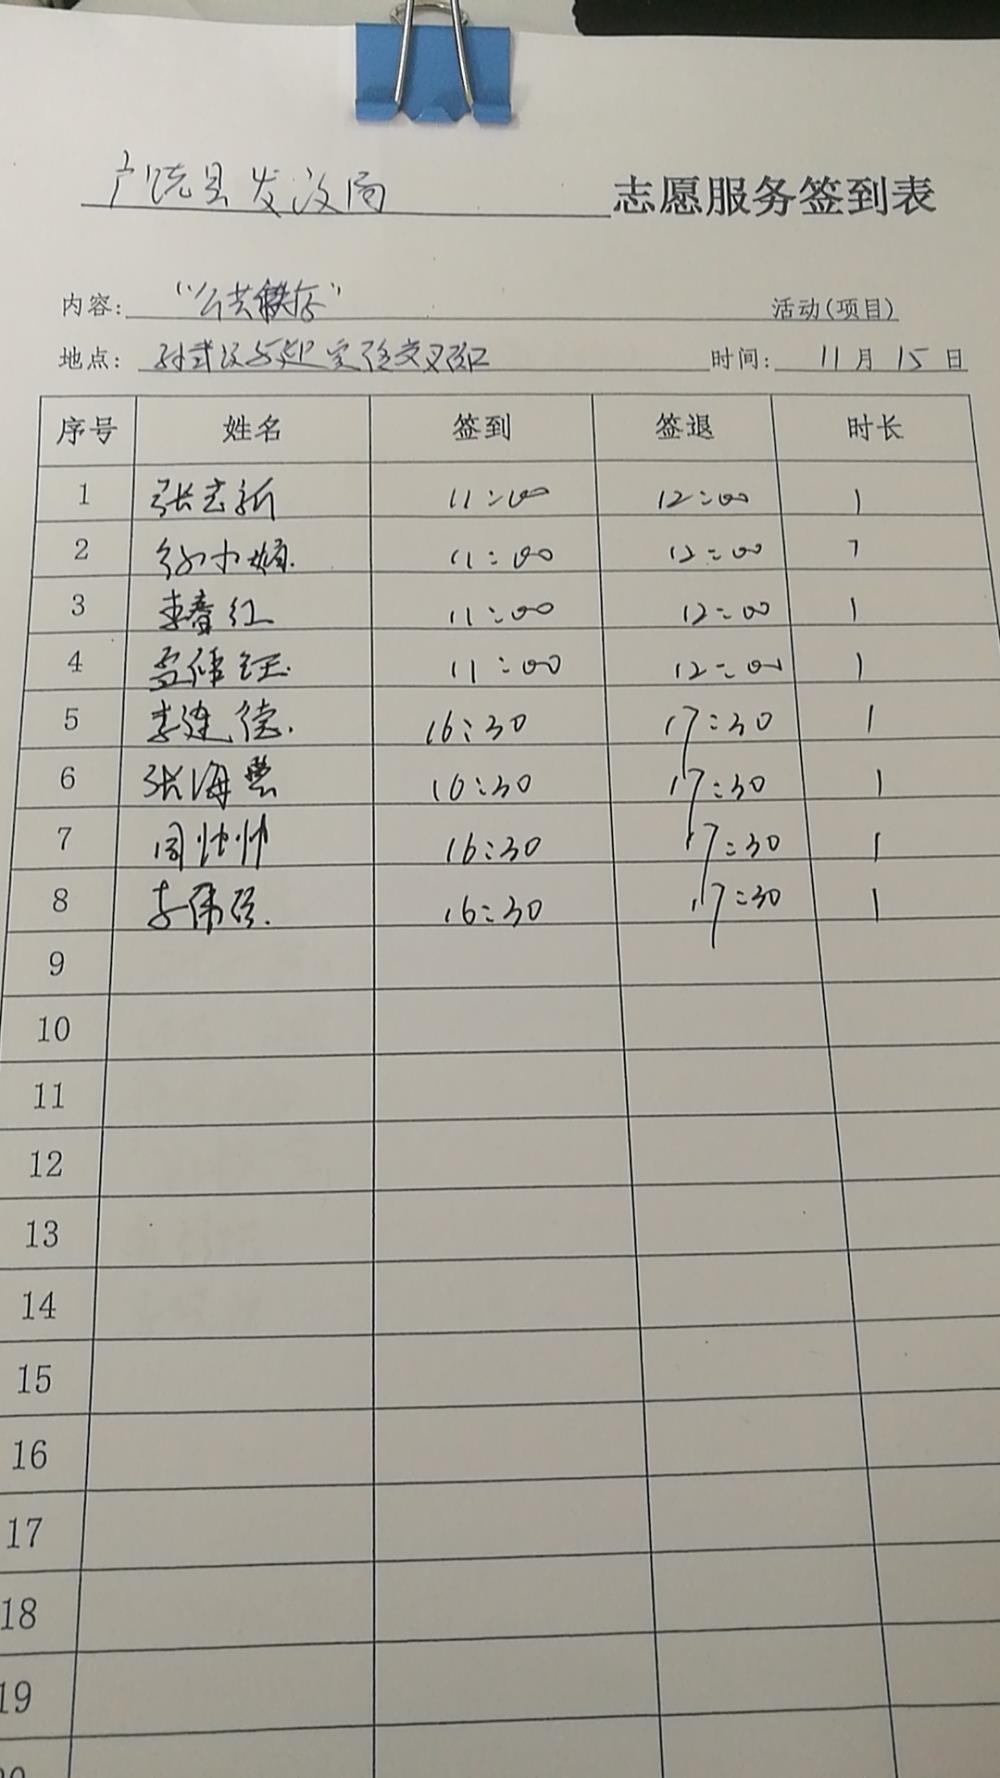 广饶县发改局 志愿服务签到表
内容: "公共秩序" 活动(项目)
地点: 孙武路与 交叉路口 时间: 11月15日
序号 姓名 签到 签退 时长
1 张志新 11:00 12:00 1
2 徐小娟 11:00 12:00 1
3 李春红 11:00 12:00 1
4 孟伟 11:00 12:00 1
5 李建德 16:30 17:30 1
6 张海 16:30 17:30 1
7 周帅帅 16:30 17:30 1
8 李伟 16:30 17:30 1
9
10
11
12
13
14
15
16
17
18
19